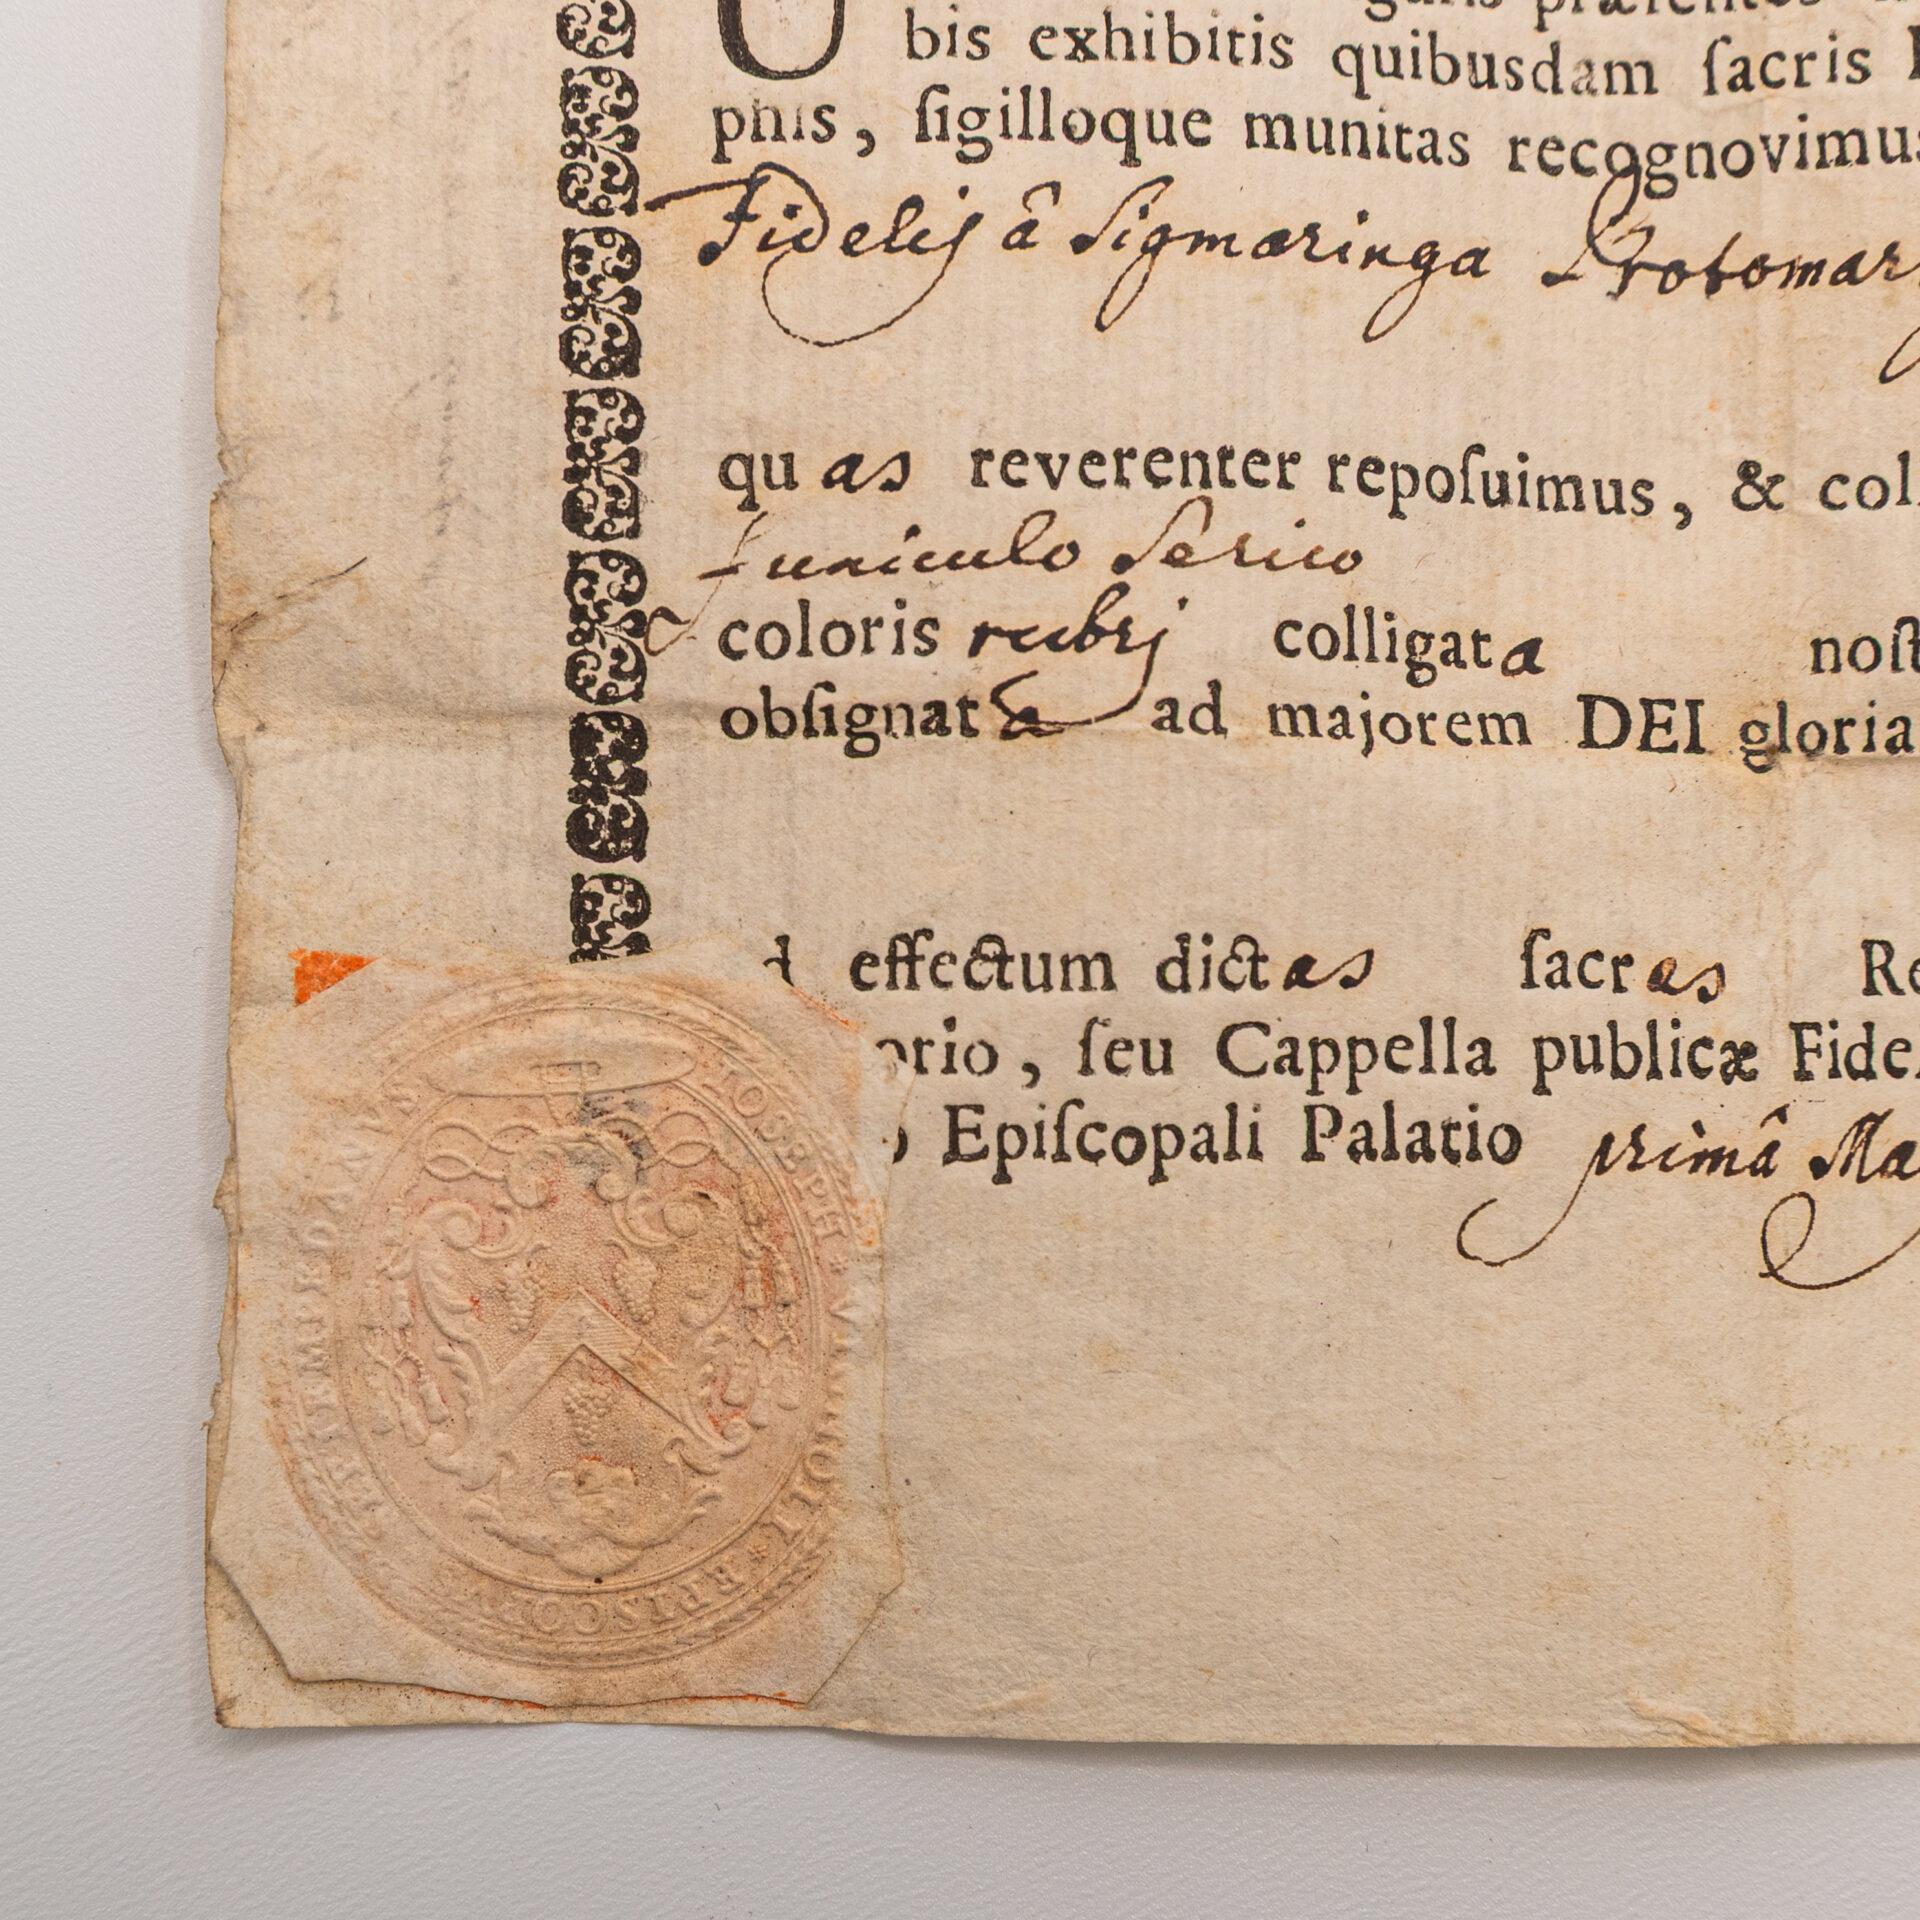 U præsentes
bis exhibitis quibusdam ſacris
phis, ſigilloque munitas recognovimus
Fidelis â Sigmaringa Protomar
quas reverenter repoſuimus, & col
funiculo Serico
coloris rubrj colligata noſt
obſignata ad majorem DEI gloria
d effectum dictas ſacras Re
orio, ſeu Cappella publicæ Fide
o Epiſcopali Palatio primâ Ma
IOSEPH
EPISCOPVS